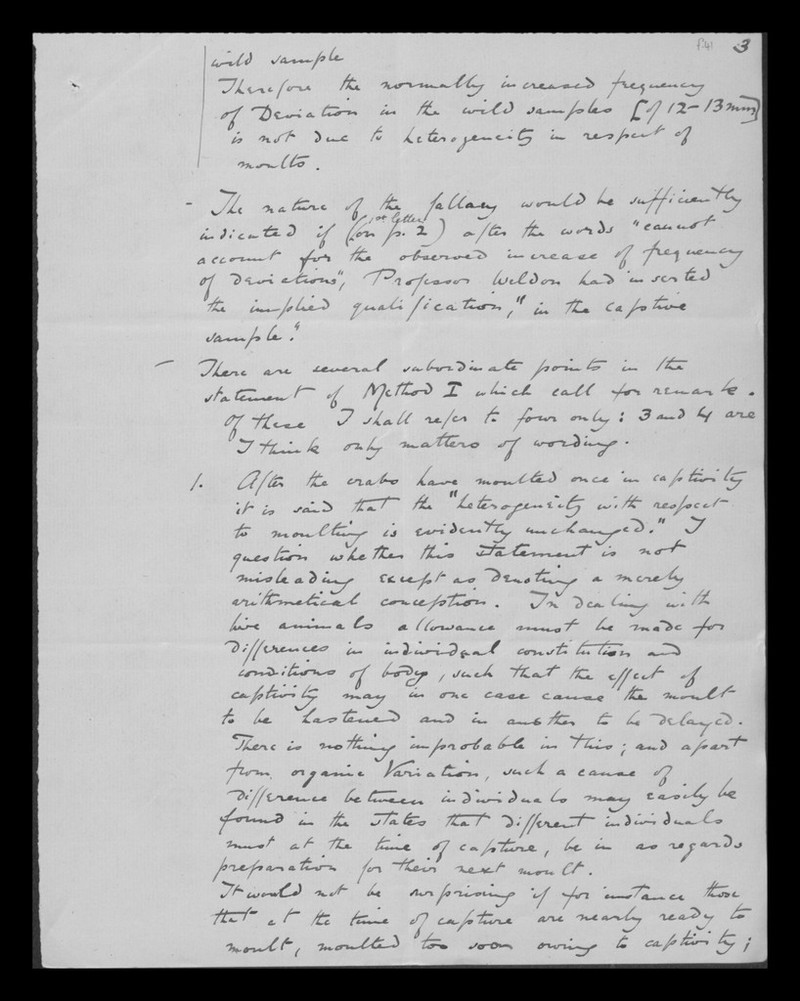 3
wild sample
Therefore the normally increased frequency
of Deviation in the wild samples [of 12-13mm]
is not due to heterogeneity in respect of
moults.
- The nature of the fallacy would be sufficiently
1st letter
indicated if (on p. 2) after the words "cannot
account for the observed increase of frequency
of deviations", Professor Weldon had inserted
the implied qualification, "in the captive
sample."
- There are several subordinate points in the
statement of Method I which call for remark.
Of these I shall refer to four only: 3 and 4 are
I think only matters of wording.
1. After the crabs have moulted once in captivity
it is said that the "heterogeneity with respect
to moulting is evidently unchanged." I
question whether this statement is not
misleading except as denoting a merely
arithmetical conception. In dealing with
live animals allowance must be made for
differences in individual constitution and
conditions of body, such that the effect of
captivity may in one case cause the moult
to be hastened and in another to be delayed.
There is nothing improbable in this; and apart
from organic Variation, such a cause of
difference between individuals may easily be
found in the states that different individuals
must at the time of capture, be in as regards
preparation for their next moult.
It would not be surprising if for instance those
that at the time of capture are nearly ready to
moult, moulted too soon owing to captivity;